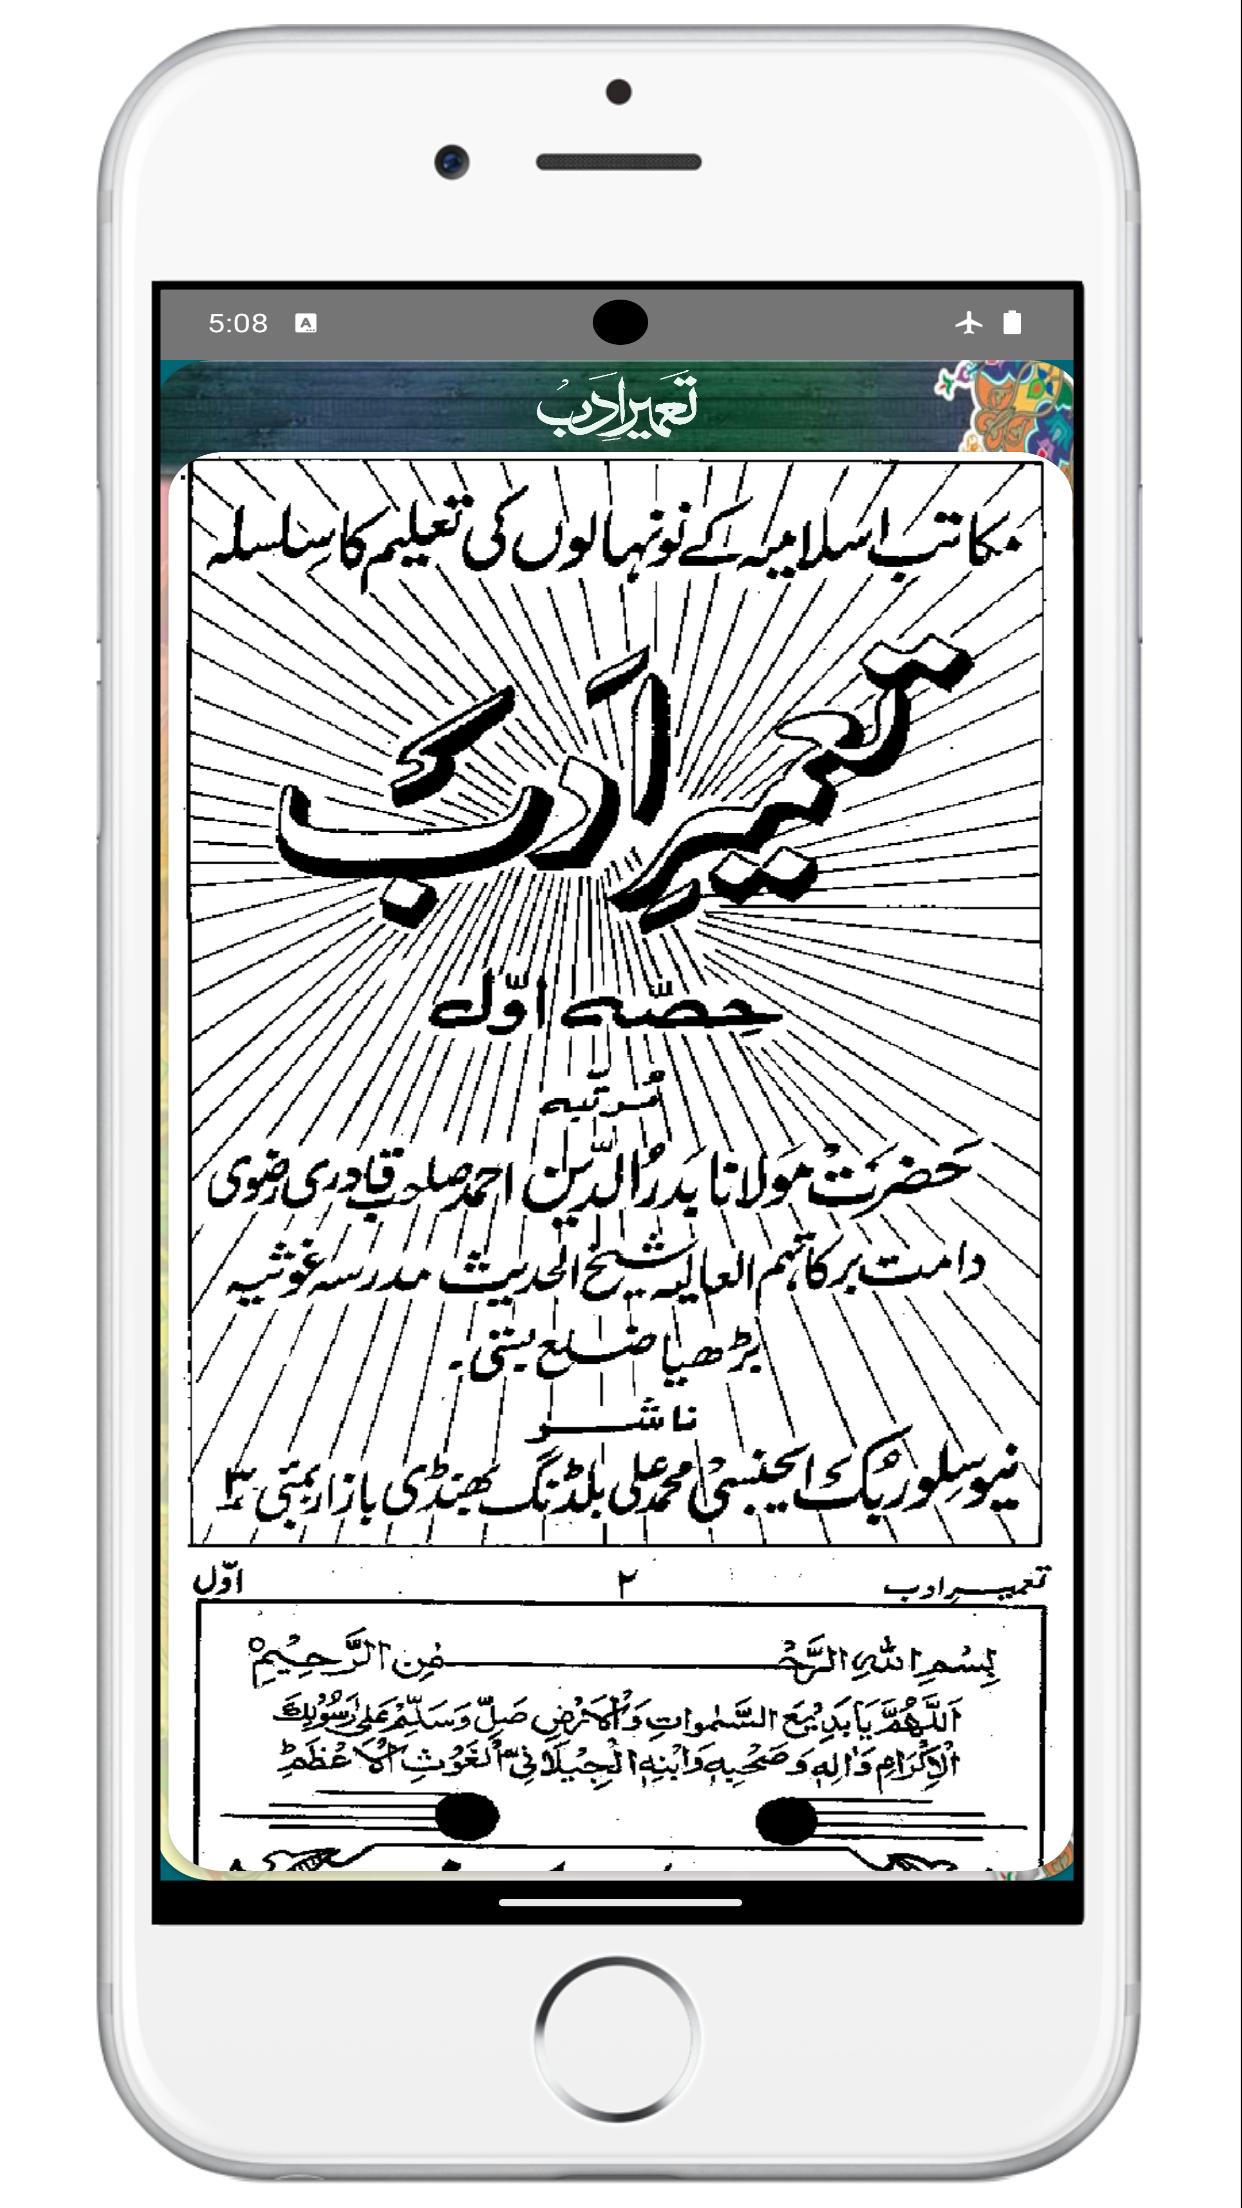 5:08
تعمیر ادب
مکاتب اسلامیہ کے نونہالوں کی تعلیم کا سلسلہ
تعمیرِ ادَب
حصّہ اوّل
مُرتبہ
حَضرَتْ مَولانا بَدرُالدِّین احمد صاحب قادری رضوی
دامت برکاتہم العالیہ شیخ الحدیث مدرسہ غوثیہ
بڑھیا ضلع بستی۔
ناشر
نیو سِلور بُک ایجنسی محمد علی بلڈنگ بھنڈی بازار بمبئی ۳
تعمیرِ ادب ۲ اوّل
بِسْمِ اللّٰهِ الرَّحْمٰنِ الرَّحِيْمِ
اَللّٰهُمَّ يَا بَدِيْعَ السَّمٰوَاتِ وَالْاَرْضِ صَلِّ وَسَلِّمْ عَلٰى رَسُوْلِكَ
الْاِكْرَامِ وَاٰلِهٖ وَصَحْبِهٖ وَابْنِهِ الْجِيْلَانِيِّ الْغَوْثِ الْاَعْظَمِ ط